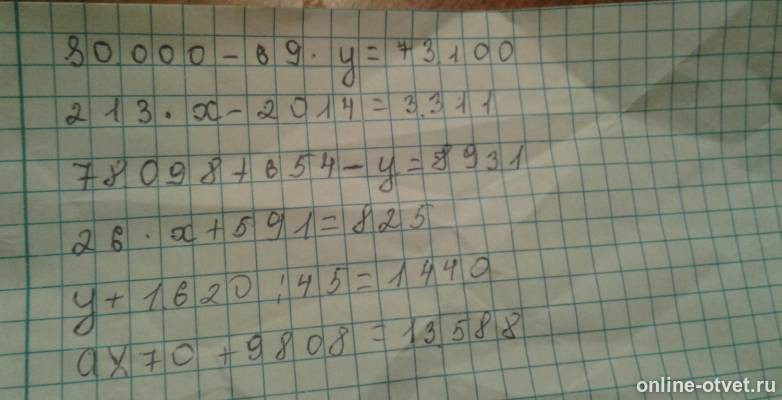 80000-69·y=73100
213·x-2014=3311
78098+654-y=8931
26·x+591=825
y+1620:45=1440
ax70+9808=13588
online-otvet.ru